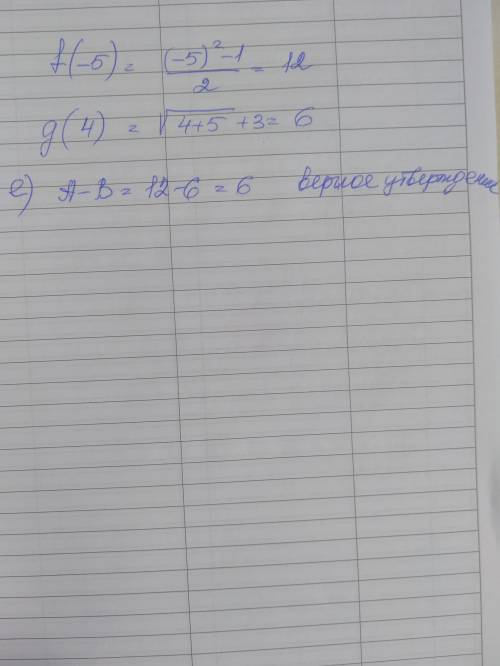 f(-5) = \frac{(-5)^2-1}{2} = 12
g(4) = \sqrt{4+5} + 3 = 6
e) A-B = 12-6 = 6 верное утверждение